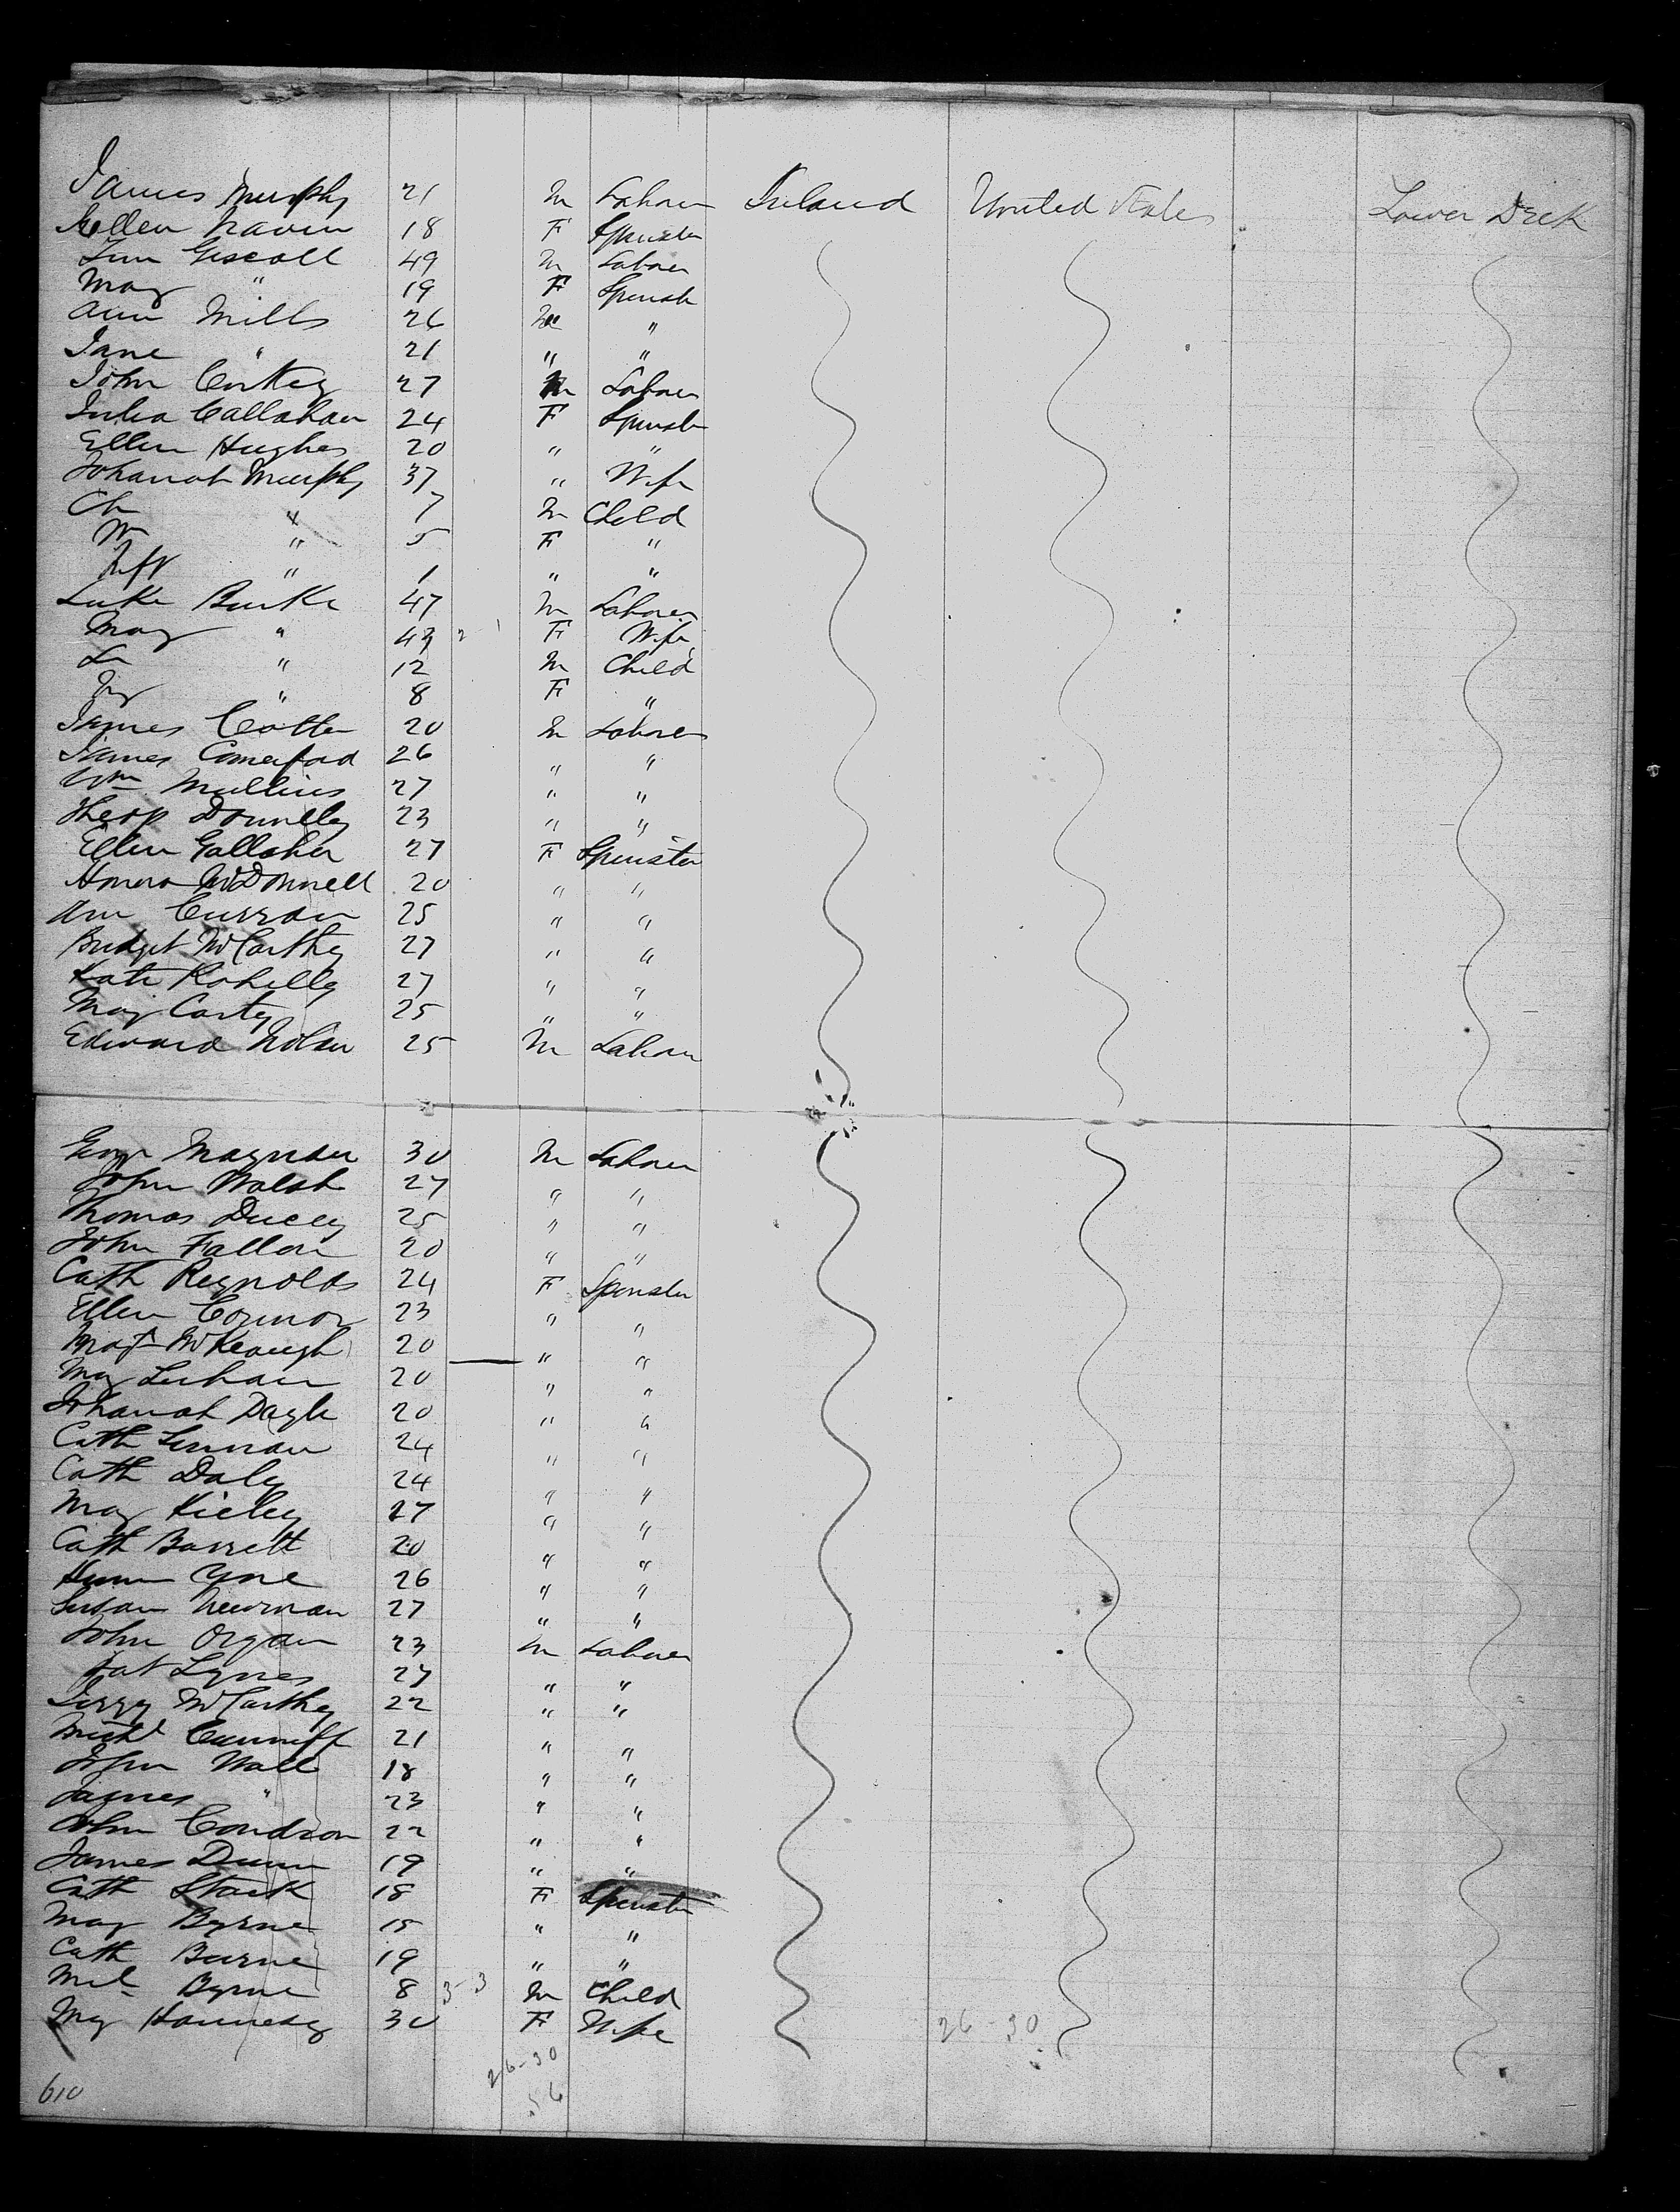 James Murphy 21 m Laborer Ireland United States Lower Deck
Ellen Naven 18 F Spinster
Giscoll 49 m Laborer
May " 19 F Spinst
Ann Mills 26 "
Jane " 21 " "
John Corkey 27 m Laborer
Julia Callahan 24 F Spinst
Ellen Hughes 20 " "
Johanah Murphy 37 " Wife
Ch " 7 m Child
Wm " 5 F "
Inft " 1 " "
Luke Burke 47 m Laborer
May " 43 F Wife
Lu " 12 m Child
My " 8 F "
James Cotter 20 m Laborer
James Comerford 26 " "
Wm Mullins 27 " "
Donnelly 23 " "
Ellen Gallaher 27 F Spinster
Honora McDonnell 20 " "
Ann Curran 25 " "
Bridget McCarthy 27 " "
Kate Rohelly 27 " "
May Carty 25 " "
Edward Nolan 25 m Labor
George Magner 30 m Laborer
John Walsh 27 " "
Thomas Ducey 25 " "
John Fallon 20 " "
Cath Reynolds 24 F Spinster
Ellen Connor 23 " "
Magt McKeough 20 " "
May Lenham 20 " "
Johanah Dayle 20 " "
Cath Lennan 24 " "
Cath Daly 24 " "
May Kieley 27 " "
Cath Barrett 20 " "
26 " "
Susan Newman 27 " "
John Organ 23 m Laborer
Pat Lynes 27 " "
McCarthy 22 " "
Michl Cunniff 21 " "
John Wall 18 " "
James " 23 " "
John Condron 22 " "
James Dunn 19 " "
Cath Stack 18 F Spinster
May Byrne 15 " "
Cath Burne 19 " "
Mil Byrne 8 3-3 m Child
My Hannesy 30 F Wife
26-30 26-30
56
610